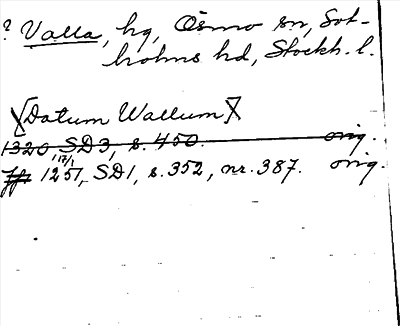 ? Valla, hg, Ösmo sn, Sot-
holms hd, Stockh. l.
[Datum Wallum]
1320, SD3, s. 450. orig.
Jfr 1251, 17/1 SD1, s. 352, nr. 387. orig.